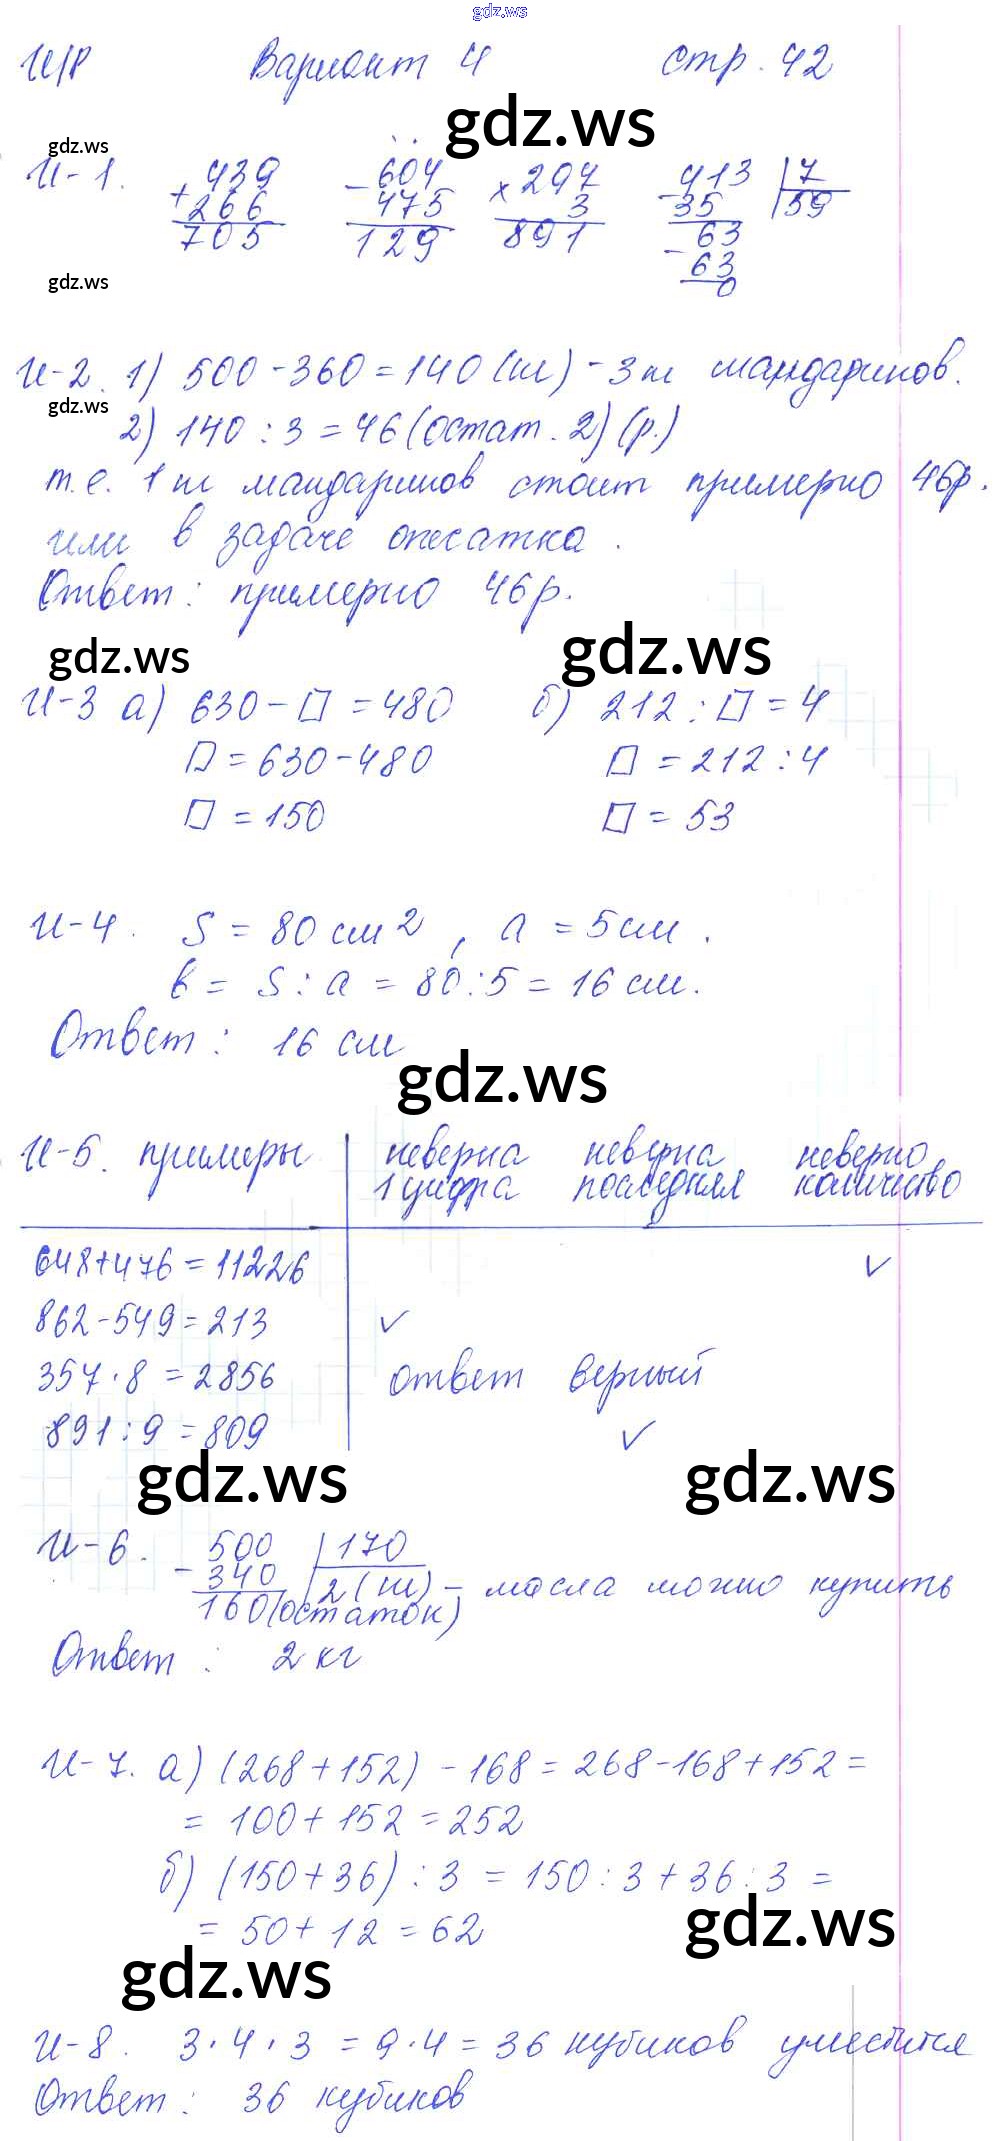 gdz.ws
И/Р Вариант 4 стр. 42
gdz.ws
gdz.ws
И-1. 439 604 297 413 | 7
+ 266 - 475 × 3 - 35 | 59
705 129 891 63
- 63
0
gdz.ws
И-2. 1) 500 - 360 = 140 (ш) - 3 ш мандаринов.
gdz.ws
2) 140 : 3 = 46 (остат. 2) (р.)
т.е. 1 ш мандаринов стоит примерно 46р.
или в задаче опечатка.
Ответ: примерно 46р.
gdz.ws gdz.ws
И-3 а) 630 - □ = 480 б) 212 : □ = 4
□ = 630 - 480 □ = 212 : 4
□ = 150 □ = 53
И-4. S = 80 см2, a = 5 см.
в = S : a = 80 : 5 = 16 см.
Ответ: 16 см
gdz.ws
И-5. примеры неверна неверна неверно
1 цифра последняя количество
648+476 = 11226 ✓
862-549 = 213 ✓
357·8 = 2856 ответ верный
891:9 = 809 ✓
gdz.ws gdz.ws
И-6. 500 | 170
- 340 | 2 (ш) - масла можно купить
160 (остаток)
Ответ: 2 кг
И-7. а) (268 + 152) - 168 = 268 - 168 + 152 =
= 100 + 152 = 252
б) (150 + 36) : 3 = 150 : 3 + 36 : 3 =
= 50 + 12 = 62
gdz.ws
gdz.ws
И-8. 3 · 4 · 3 = 9 · 4 = 36 кубиков уместится
Ответ: 36 кубиков